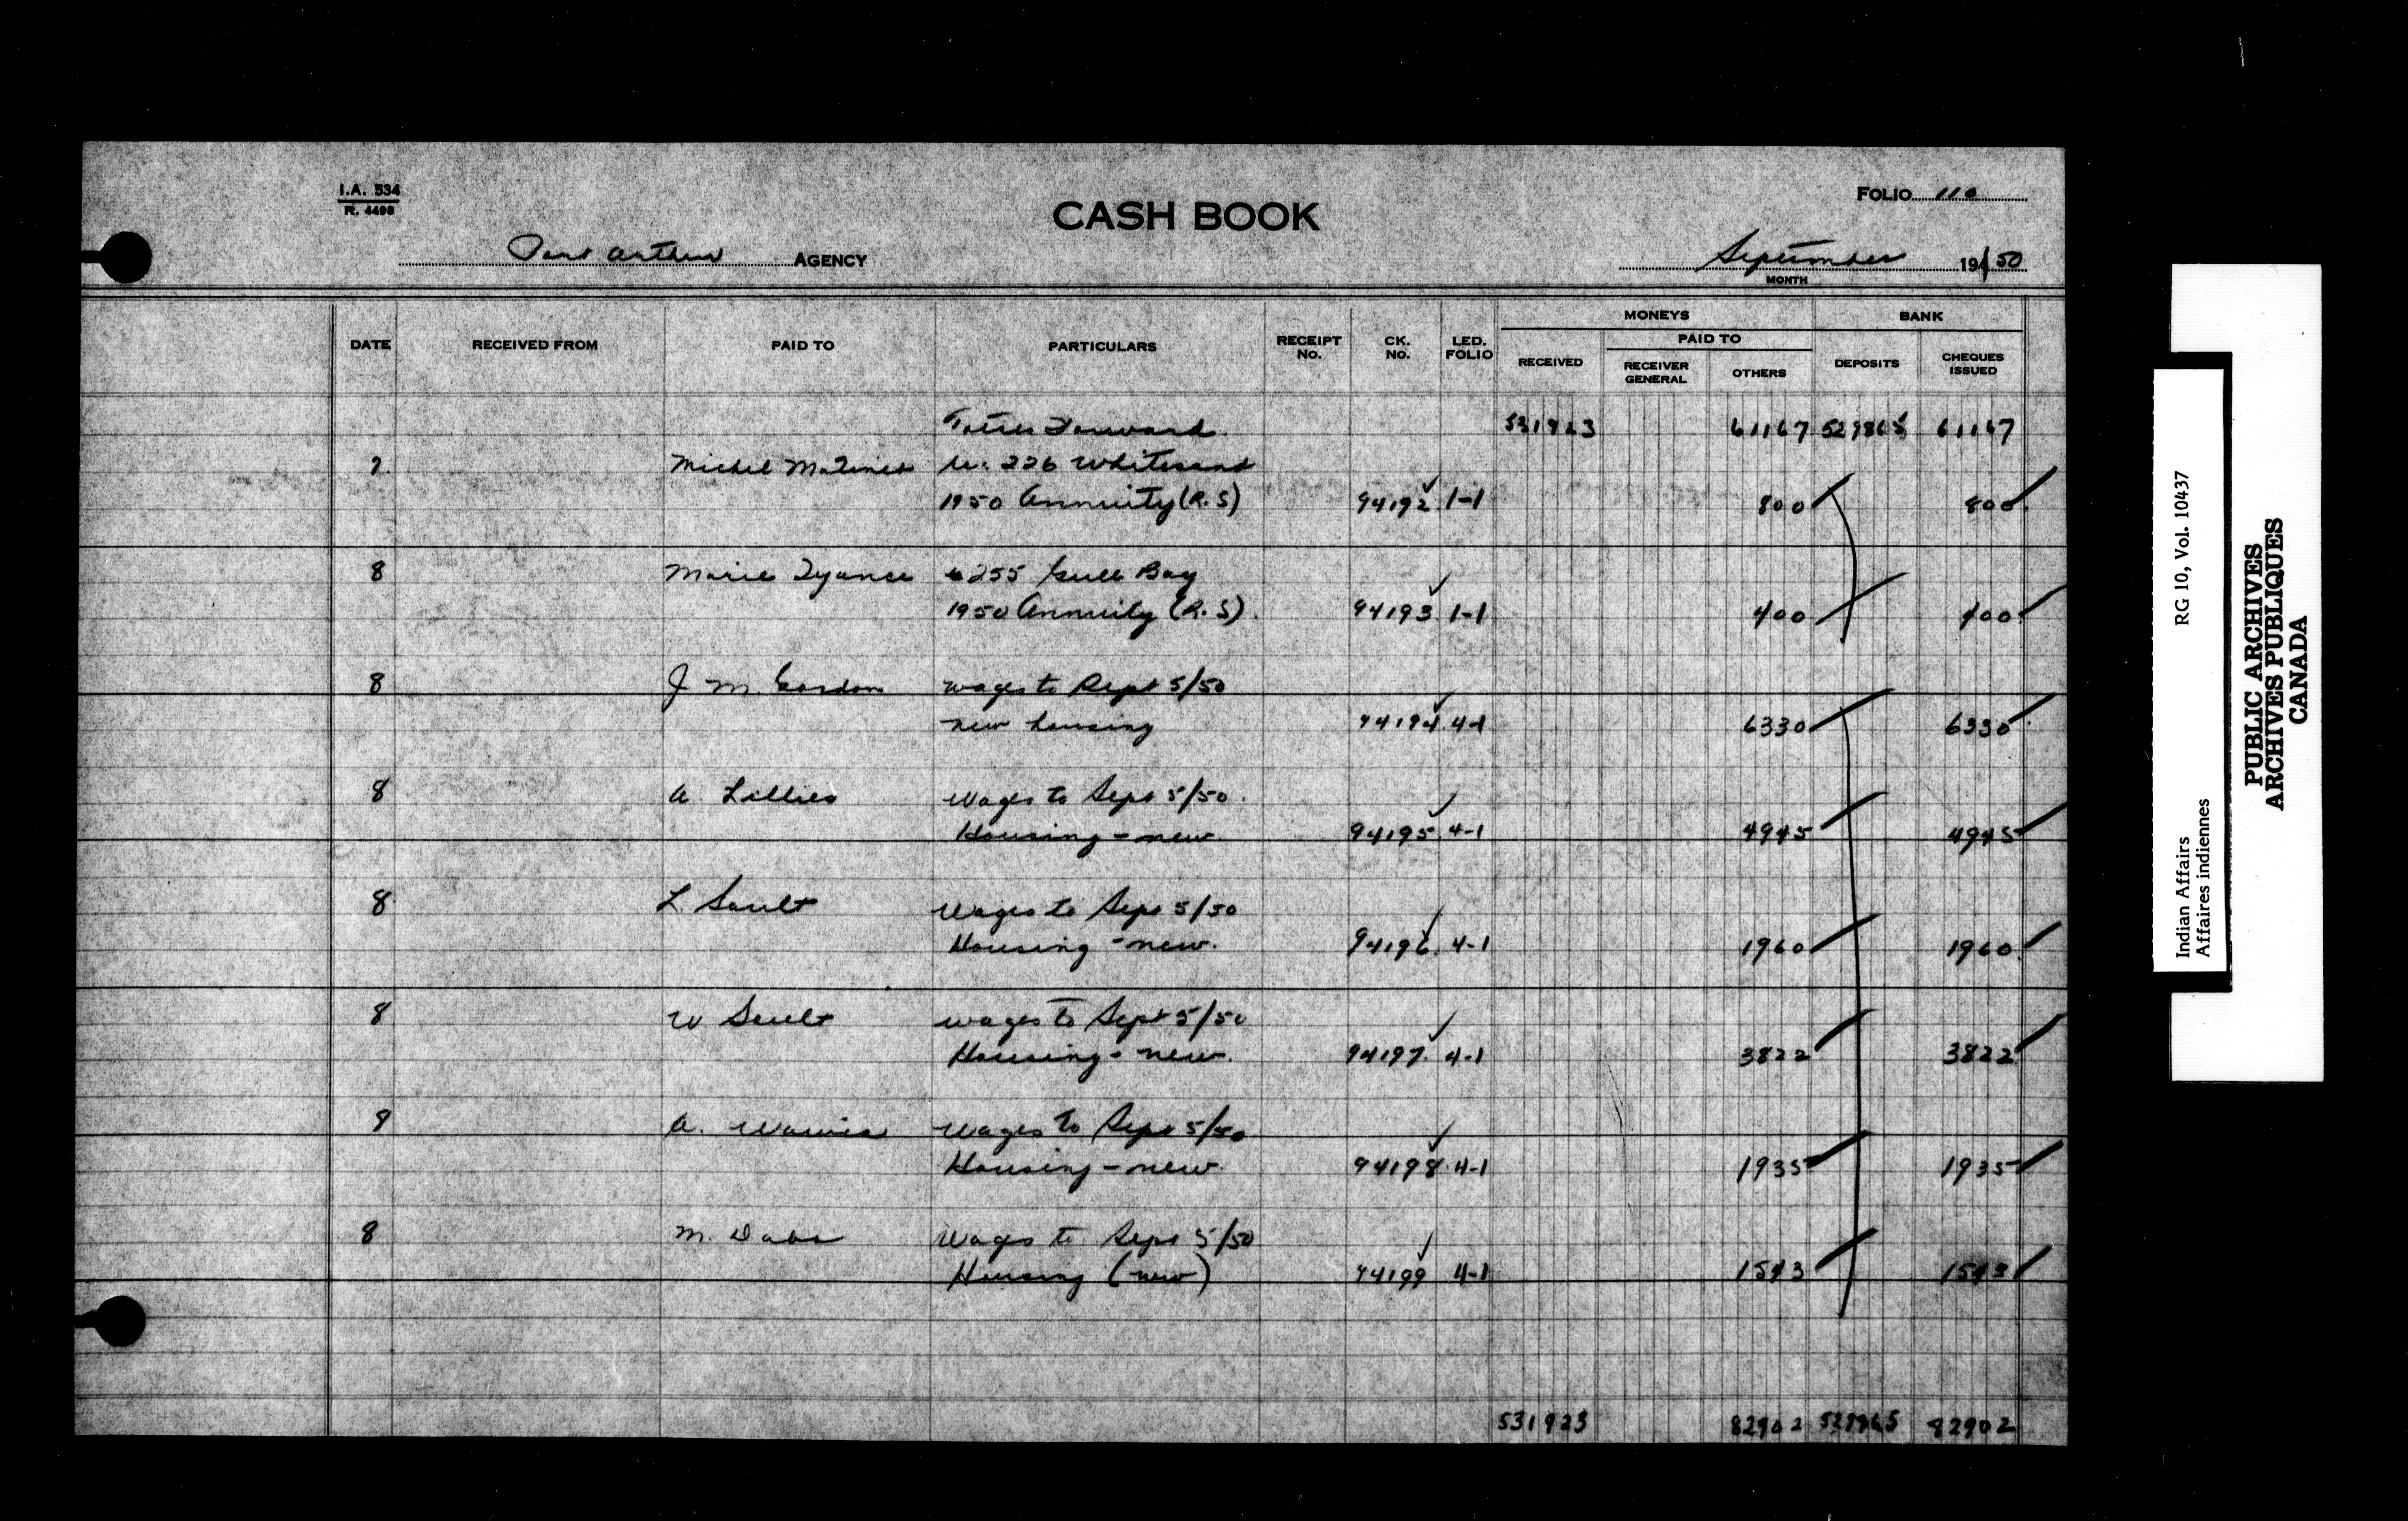 I.A. 534
R. 4498
CASH BOOK
FOLIO 110
Port Arthur AGENCY
September 1950
MONTH
DATE RECEIVED FROM PAID TO PARTICULARS RECEIPT No. CK. No. LED. FOLIO MONEYS RECEIVED PAID TO RECEIVER GENERAL OTHERS BANK DEPOSITS CHEQUES ISSUED
Forward 531923 61167 529865 61167
7 Michel 226 Whitesand
1950 Annuity (R.S) 94192 1-1 800 800
8 Marie 255 Gull Bay
1950 Annuity (R.S). 94193 1-1 400 400
8 J M. Gordon wages to Sept 5/50
new housing 94194 4-1 6330 6330
8 A. Lillies Wages to Sept 5/50.
Housing - new. 94195 4-1 4945 4945
8 L. Sault Wages to Sept 5/50
Housing - new. 94196 4-1 1960 1960
8 W Sault wages to Sept 5/50
Housing - new. 94197 4-1 3822 3822
8 A. Wages to Sept 5/50
Housing - new. 94198 4-1 1935 1935
8 M. Wages to Sept 5/50
Housing (new) 94199 4-1 1543 1543
531923 82902 529865 82902
Indian Affairs RG 10, Vol. 10437
Affaires indiennes
PUBLIC ARCHIVES
ARCHIVES PUBLIQUES
CANADA